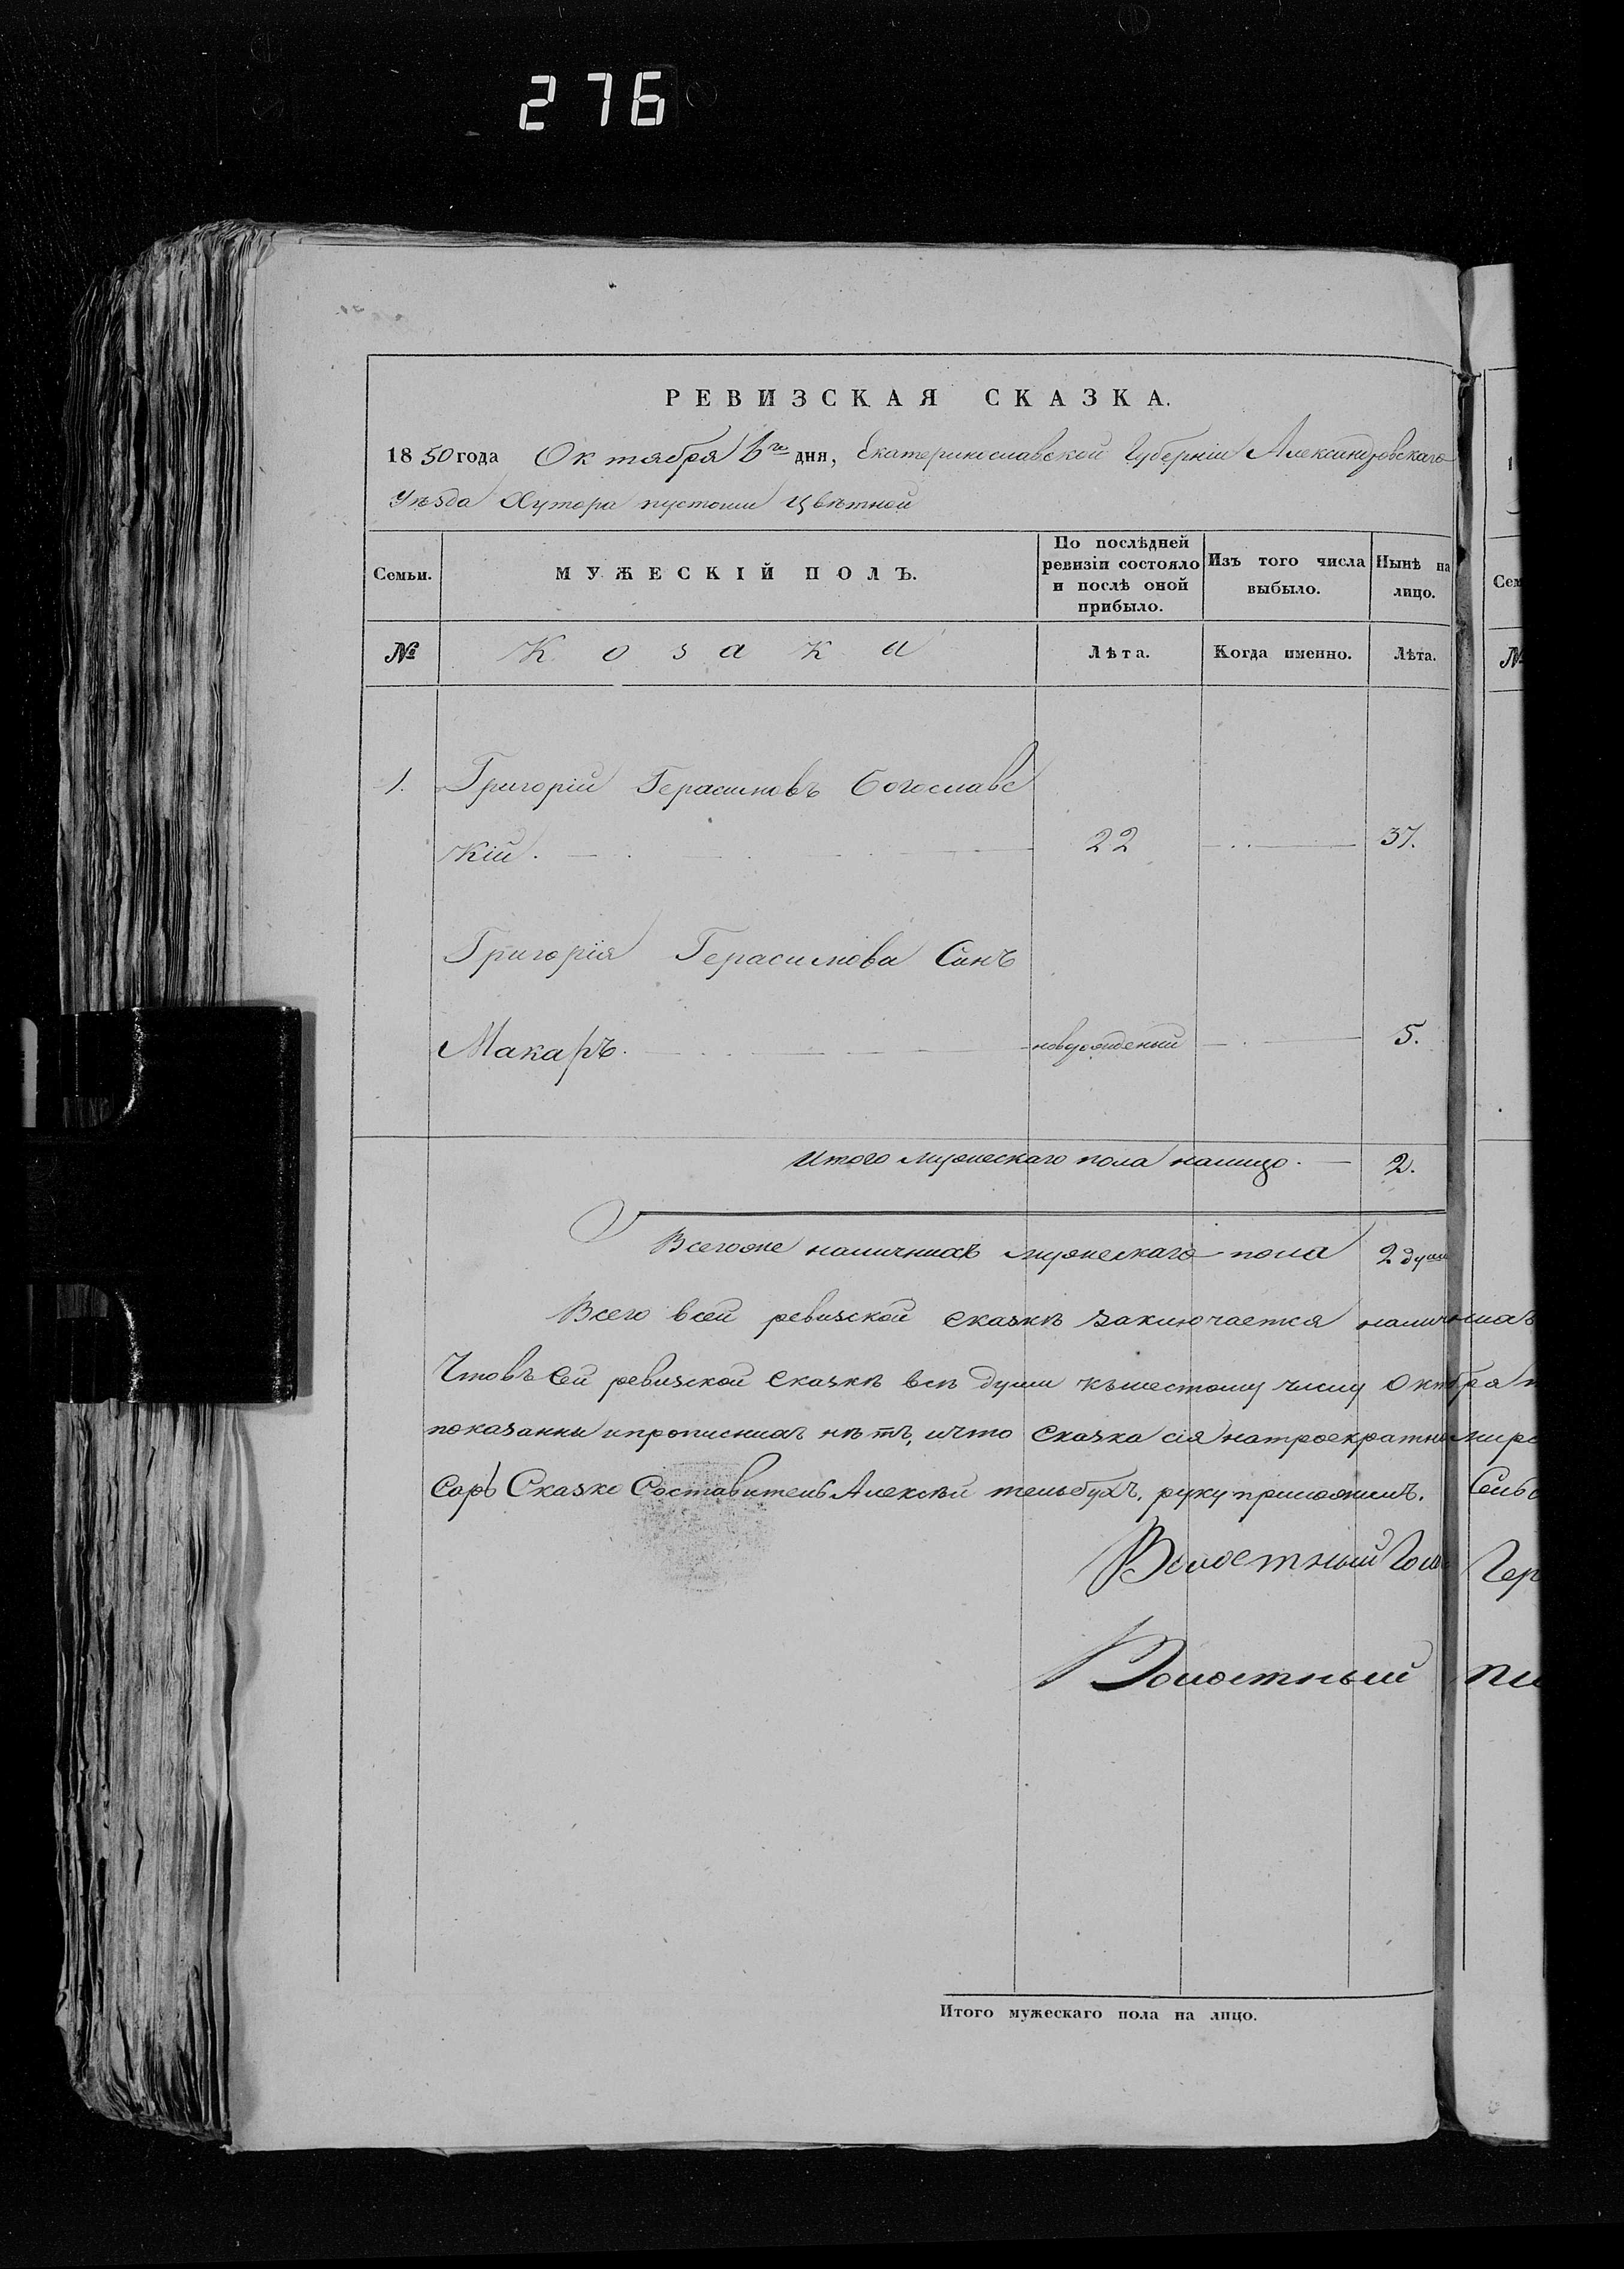 276
РЕВИЗСКАЯ СКАЗКА.
1850 года Октября 6го дня, Екатеринославской Губерніи Александровскаго
Уѣзда Хутора пустоши Цвѣтной
Семьи.
МУЖЕСКІЙ ПОЛЪ.
По послѣдней ревизіи состояло и послѣ оной прибыло.
Изъ того числа выбыло.
Нынѣ на лицо.
№ Козака Лѣта. Когда именно. Лѣта.
1. Григорій Герасимовъ Богославс
кій. 22 37.
Григорія Герасимова Синъ
Макаръ. новорожденый 5.
Итого мужескаго пола налицо. 2.
Всегоже наличнихъ мужескаго пола 2 душ
Всего всей ревизской сказкѣ заключается наличнихъ
Чтовъ сей ревизской сказкѣ всѣ души къшестому числу Октября
показанны ипрописнихъ нѣтъ, ичто Сказка сія натроекратно мирс
Сказке Составитель Алексѣй тельбухъ, руку приложилъ. Сельс
Волостный Голо
Волостный пи
Итого мужескаго пола на лицо.